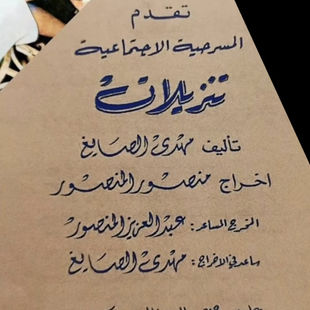 تقدم
المسرحية الاجتماعية
تنزيلات
تأليف مهدي الصايغ
اخراج منصور المنصور
المخرج المساعد: عبدالعزيز المنصور
ساعد في الاخراج: مهدي الصايغ